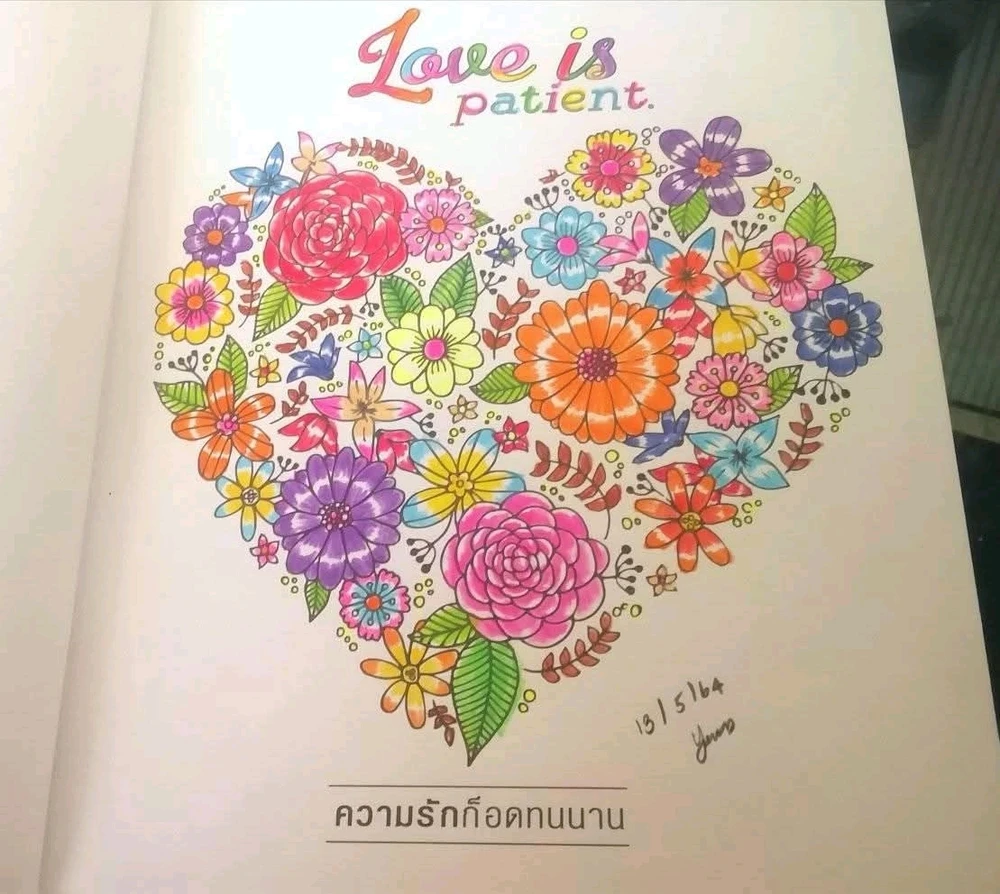 Love is
patient.
13/5/64
ความรักก็อดทนนาน